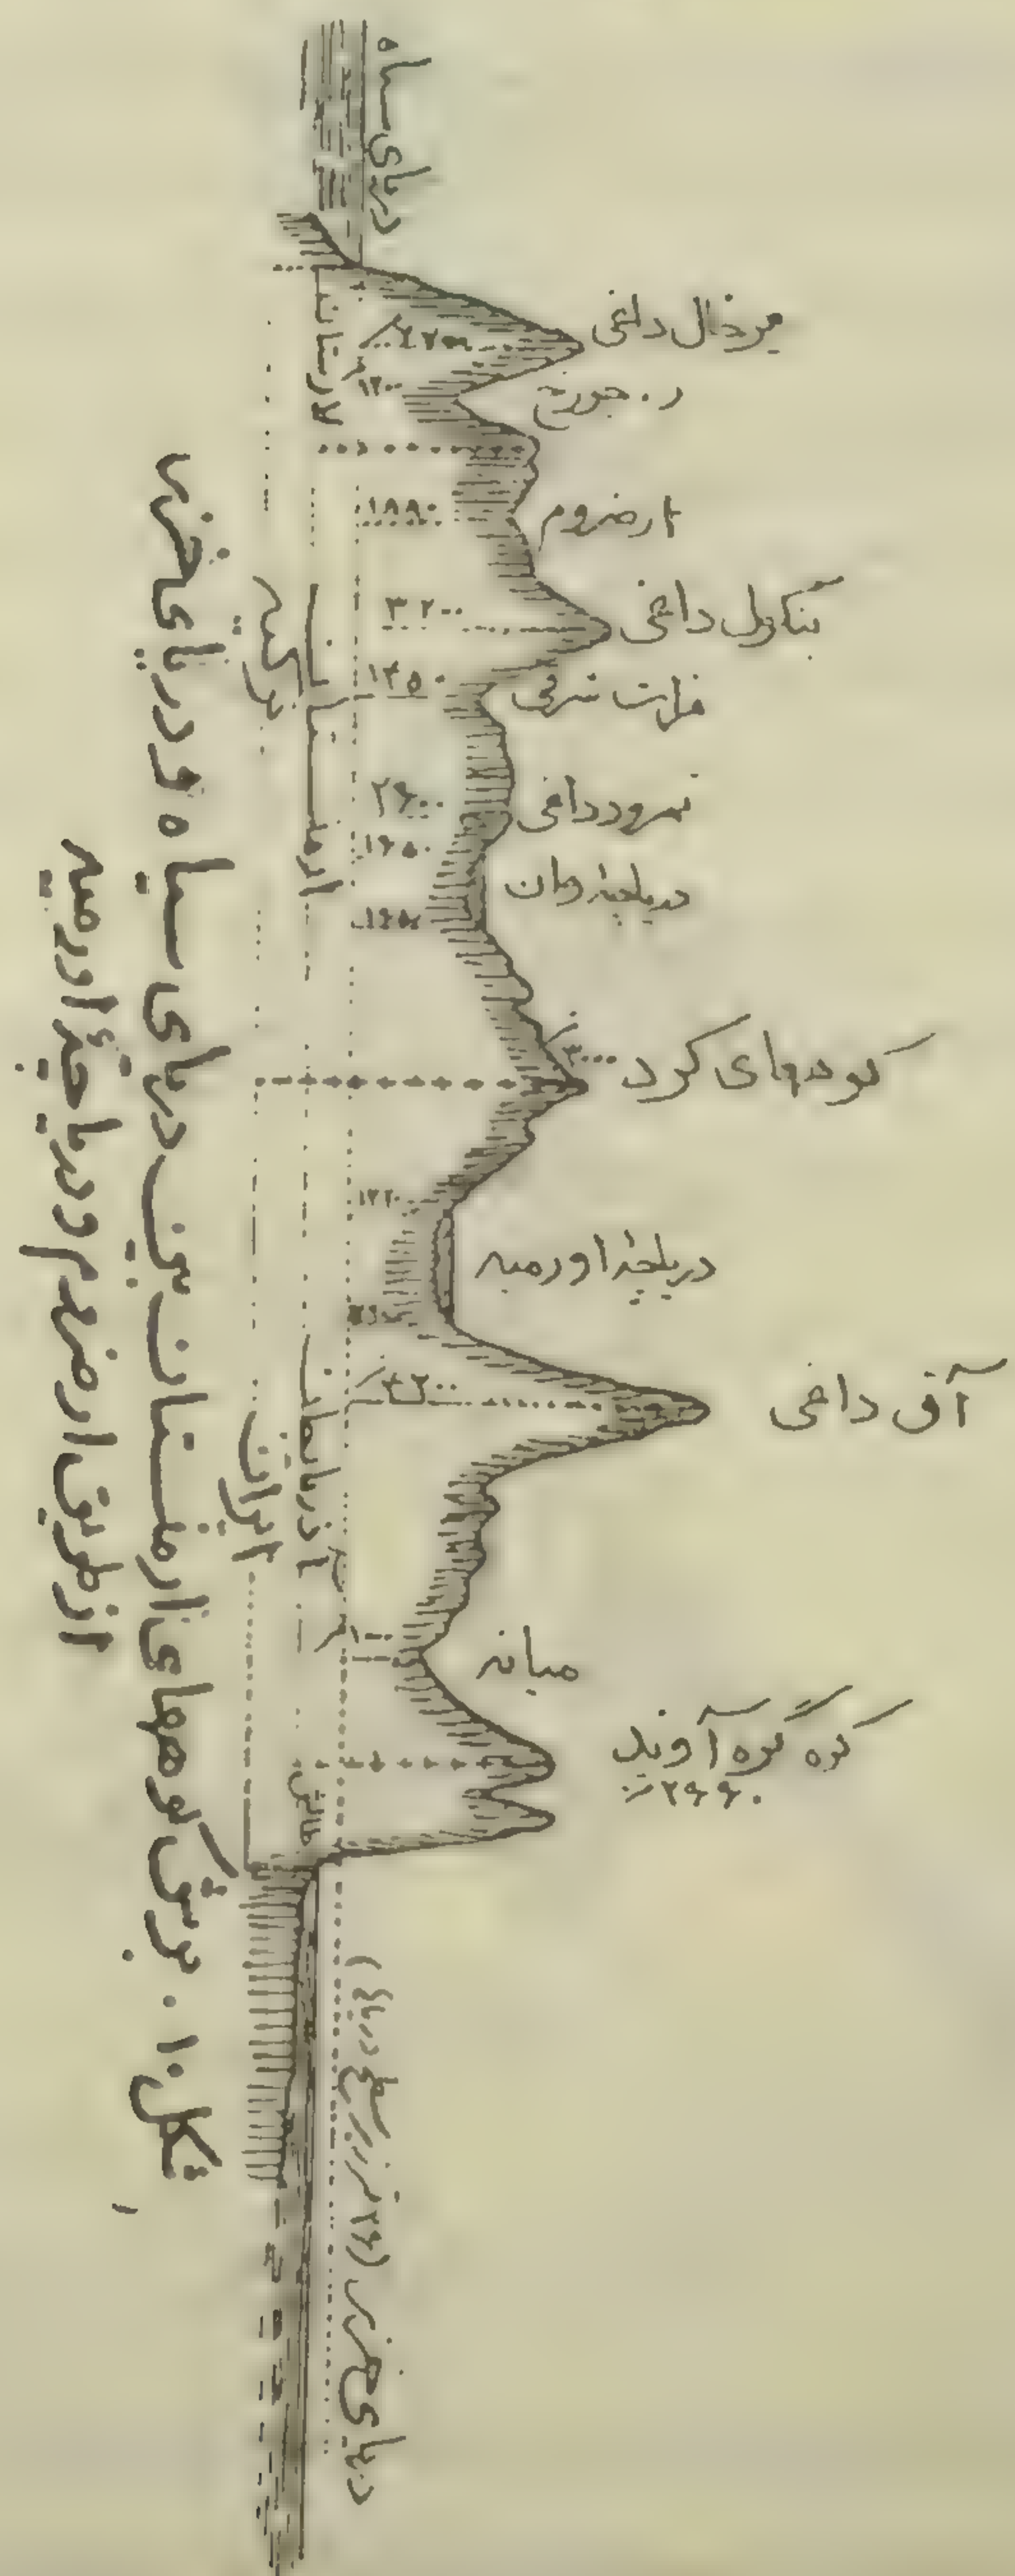 دریای سیاه
میرخال داغی
ر. جوروخ
ارضروم
بنگول داغی
فرات شرقی
نمرود داغی
دریاچهٔ وان
کوههای کرد
دریاچهٔ اورمیه
آق داغی
میانه
کوه گوه آوند
۲۶۶۰
لازستان
۱۲۰۰
۱۸۸۰
۳۲۰۰
۲۶۰۰
۱۶۵۰
۳۰۰۰
۱۲۲۰
ارمنستان
ترکیه
آذربایجان
ایران
طالش
دریای خزر (۲۶ متر زیر سطح دریا)
شکل ۱۰. برش کوههای ارمنستان بین دریای سیاه و دریای خزر
از طریق ارضروم و دریاچهٔ اورمیه